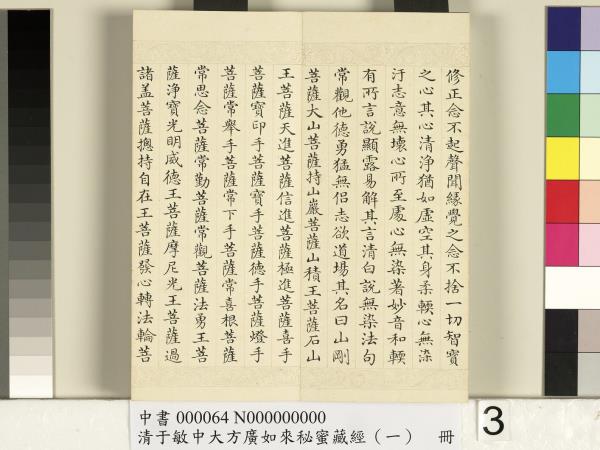 修正念不起聲聞緣覺之念不捨一切智寶
之心其心清淨猶如虛空其身柔輭心無染
汙志意無壞心所至處心無染著妙音和輭
有所言說顯露易解其言清白說無染法句
常觀他德勇猛無侶志欲道場其名曰山剛
菩薩大山菩薩持山巖菩薩山積王菩薩石山
王菩薩天進菩薩信進菩薩極進菩薩喜手
菩薩寶印手菩薩寶手菩薩德手菩薩燈手
菩薩常舉手菩薩常下手菩薩常喜根菩薩
常思念菩薩常勤菩薩常觀菩薩法勇王菩
薩淨寶光明威德王菩薩摩尼光王菩薩過
諸盖菩薩揔持自在王菩薩發心轉法輪菩
中書 000064 N000000000
清于敏中大方廣如來秘蜜藏經（一） 冊
3